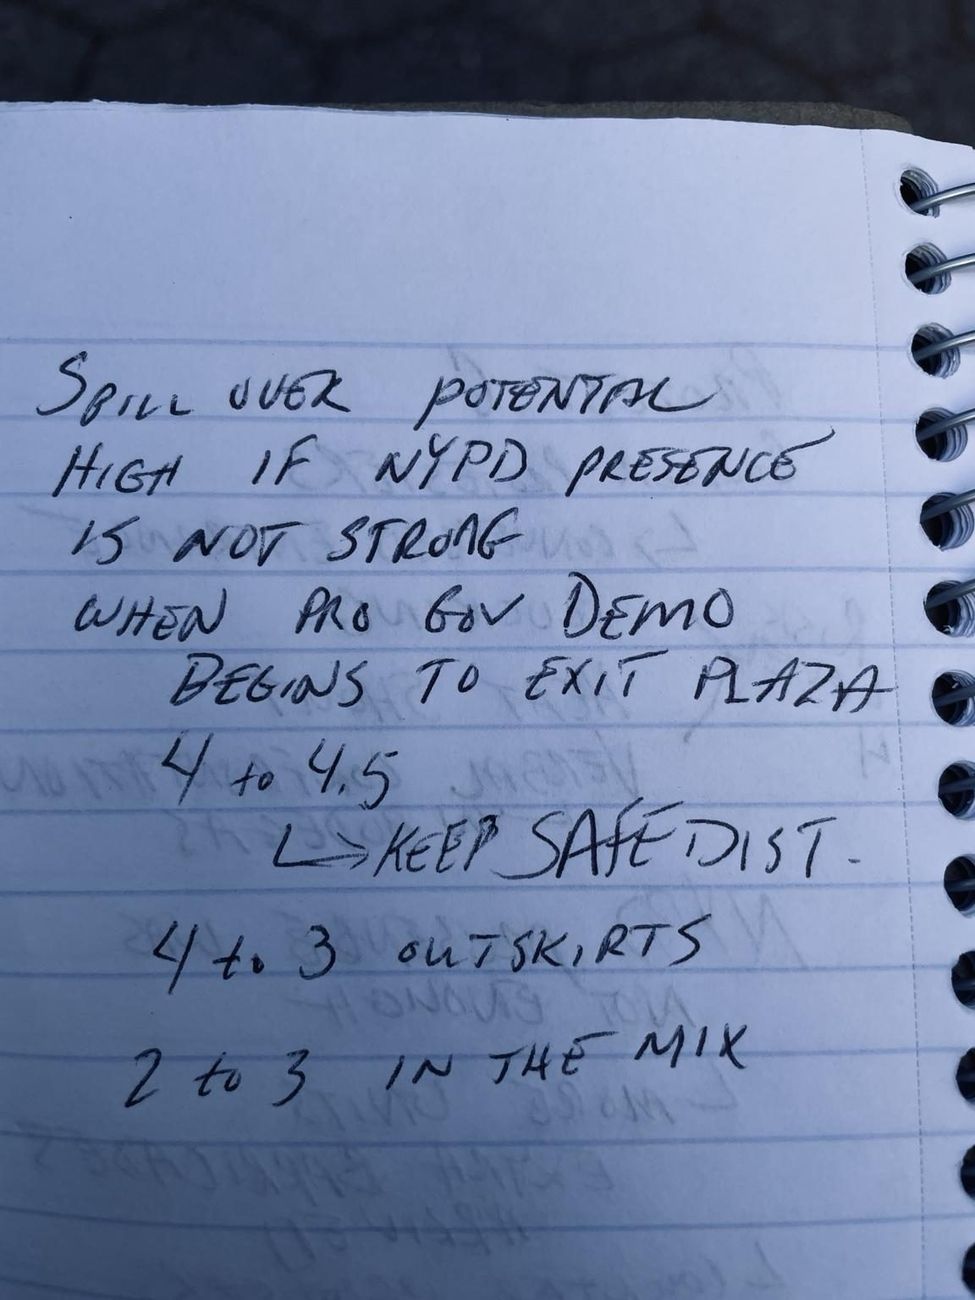 SPILL OVER POTENTIAL
HIGH IF NYPD PRESENCE
IS NOT STRONG
WHEN PRO GOV DEMO
BEGINS TO EXIT PLAZA
4 to 4.5
↳ KEEP SAFE DIST.
4 to 3 OUTSKIRTS
2 to 3 IN THE MIX